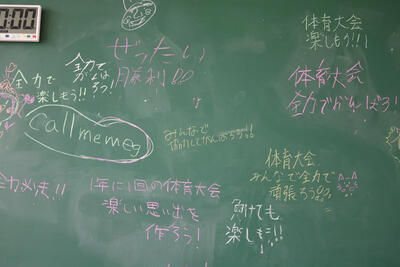 7:00
体育大会
楽しもう!!!
ぜったい
月券利!!
全力で
がんばろう!
全力で
楽しもう!!
体育大会
全力でがんばろ!
call me meg
みんなで
協力してがんばろう!!
体育大会
みんなで全力で
頑張ろう!!
全力必走!!
1年に1回の体育大会
楽しい思い出を
作ろう!
負けても
楽しも!!!